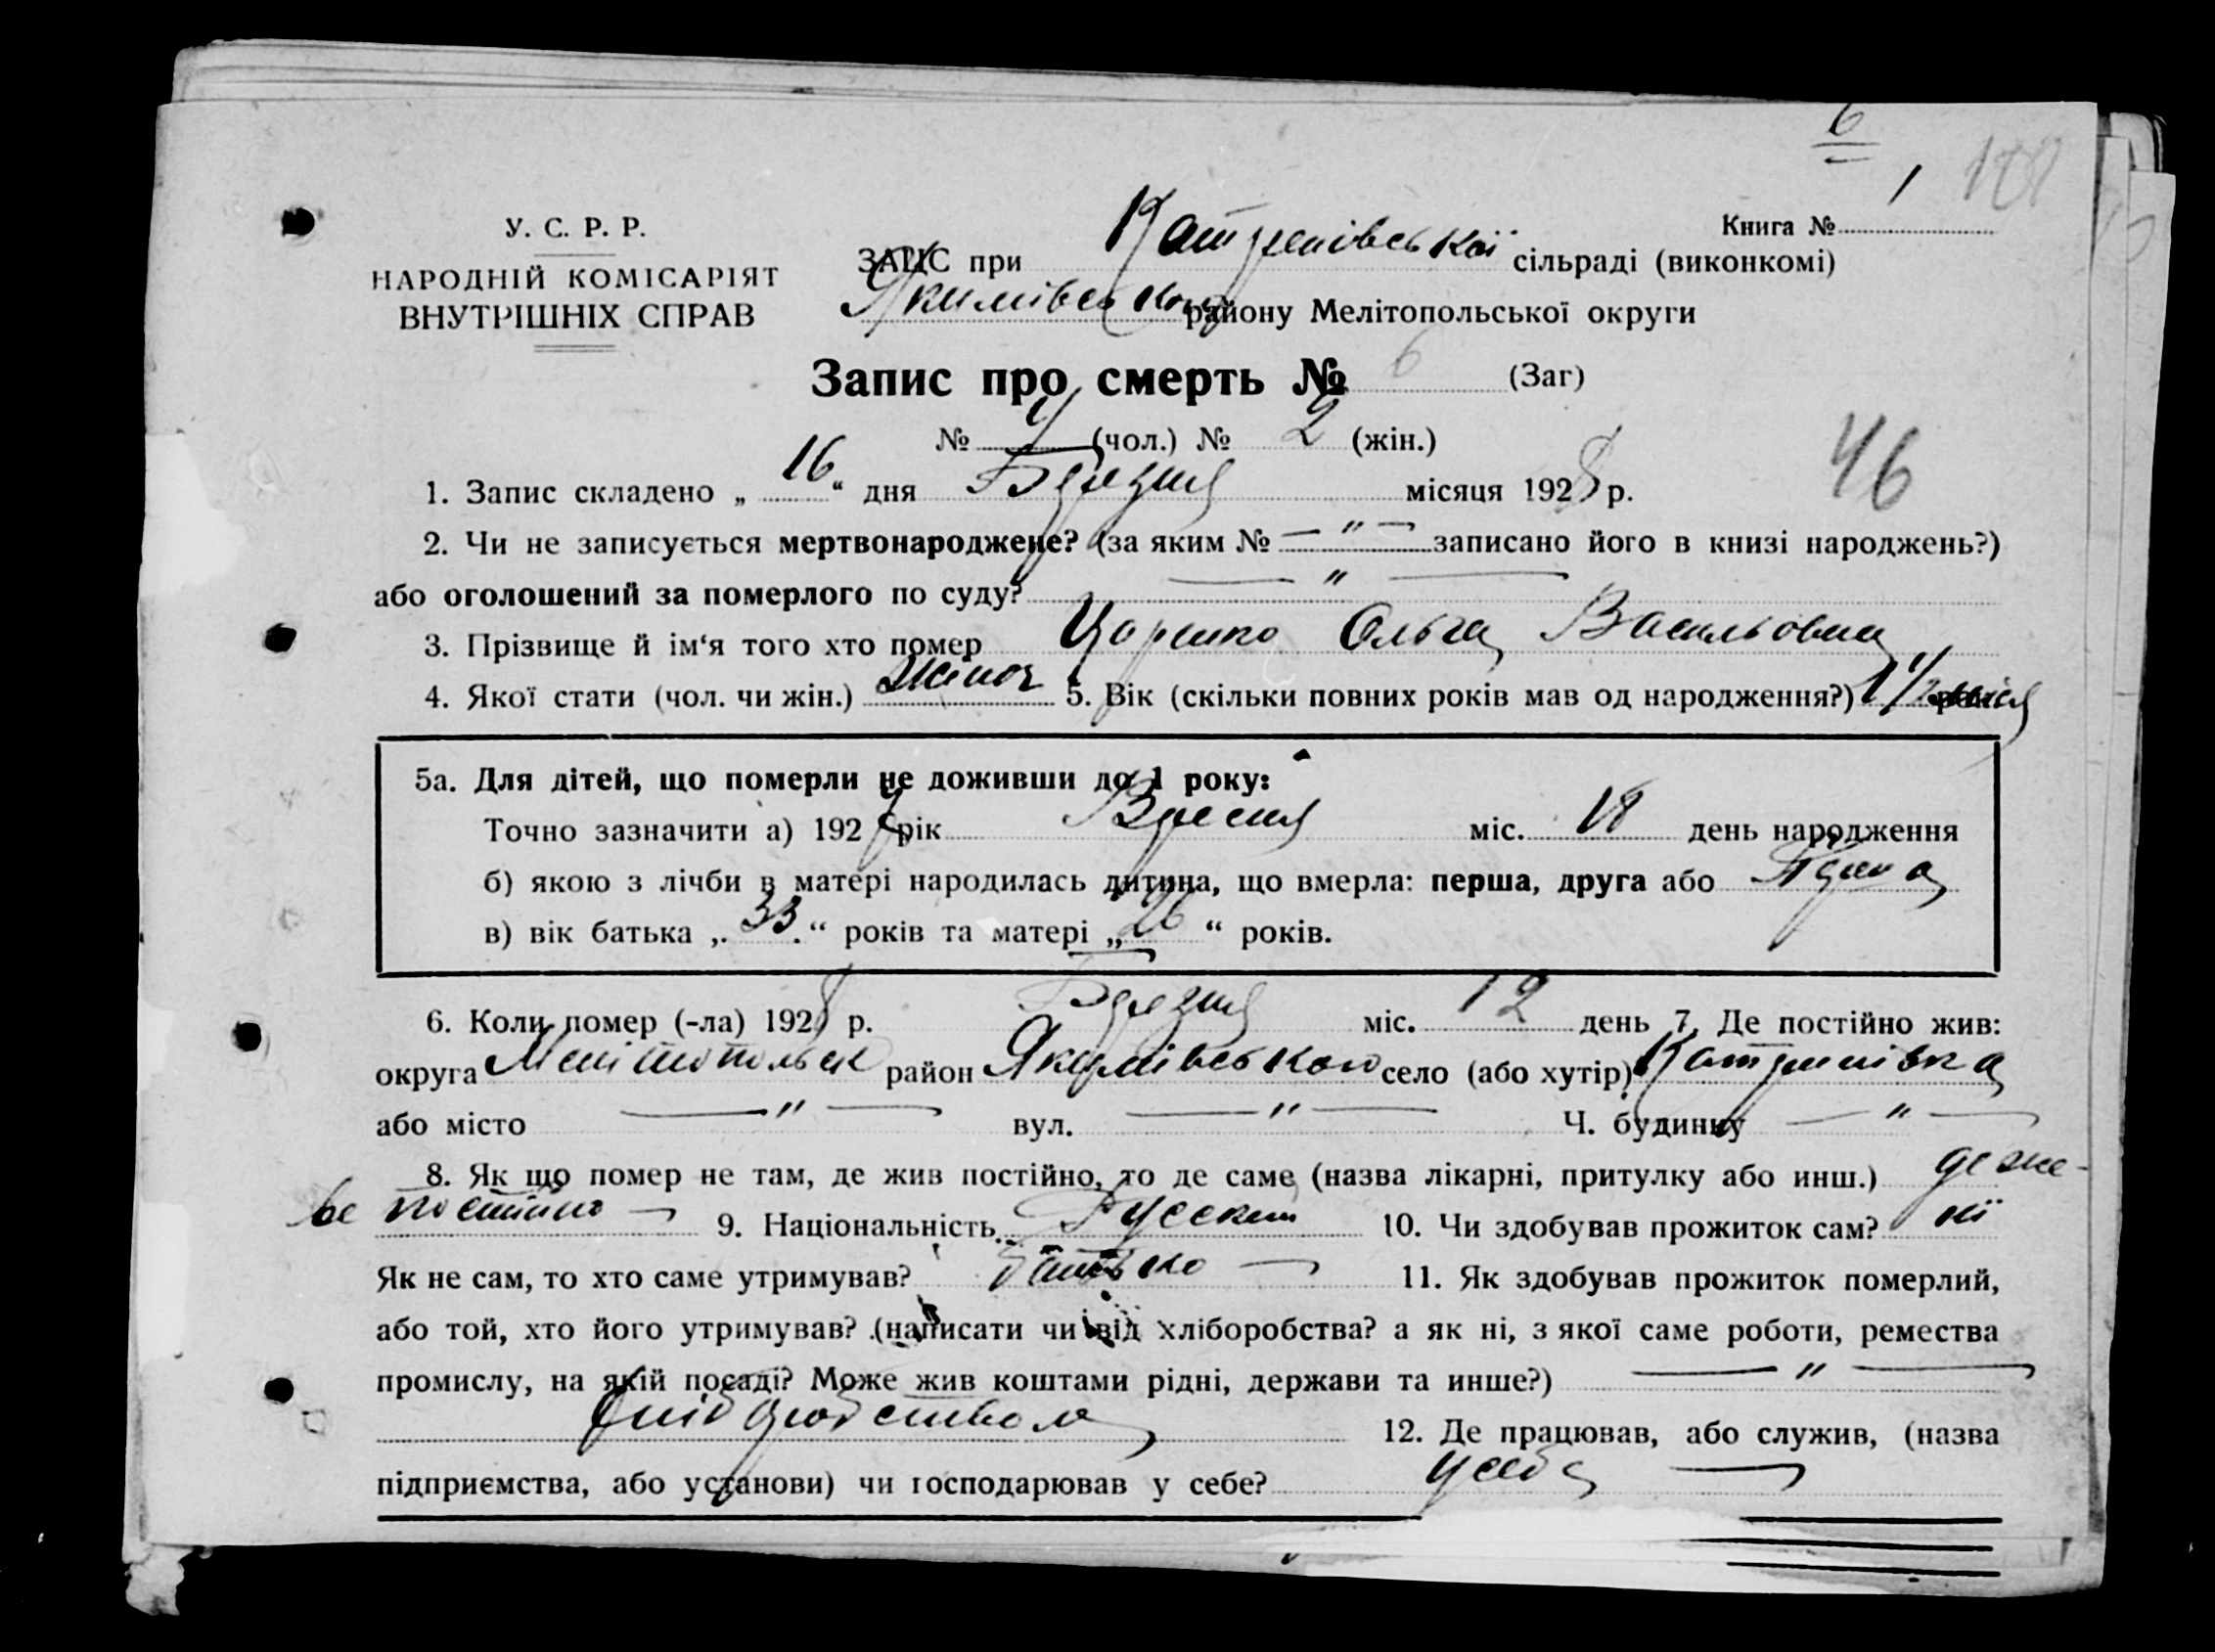 6
1 188
У. С. Р. Р.
НАРОДНІЙ КОМІСАРІЯТ
ВНУТРІШНІХ СПРАВ
Книга №
ЗАЦС при Катренівської сільраді (виконкомі)
Якимівського району Мелітопольської округи
Запис про смерть № 6 (Заг)
№ (чол.) № 2 (жін.)
46
1. Запис складено „ 16 “ дня Березня місяця 1928 р.
2. Чи не записується мертвонароджене? (за яким № — " — записано його в книзі народжень?)
або оголошений за померлого по суду? — " —
3. Прізвище й ім‘я того хто помер Ольга Васильовна
4. Якої стати (чол. чи жін.) жіноч 5. Вік (скільки повних років мав од народження?) 1 1/2
5а. Для дітей, що померли не доживши до 1 року:
Точно зазначити а) 192 рік Вресня міс. 18 день народження
б) якою з лічби в матері народилась дитина, що вмерла: перша, друга або
в) вік батька „ 33 “ років та матері „ 26 “ років.
6. Коли помер (-ла) 1928 р. Березня міс. 12 день 7. Де постійно жив:
округа Мелітопольск район Якимівського село (або хутір) Катринівка
або місто — " — вул. — " — Ч. будинку — " —
8. Як що помер не там, де жив постійно, то де саме (назва лікарні, притулку або инш.) де жи-
ве постійно — 9. Національність Русские 10. Чи здобував прожиток сам? ні
Як не сам, то хто саме утримував? батько — 11. Як здобував прожиток померлий,
або той, хто його утримував? (написати чи від хліборобства? а як ні, з якої саме роботи, ремества
промислу, на якій посаді? Може жив коштами рідні, держави та инше?) — " —
хліборобством 12. Де працював, або служив, (назва
підприємства, або установи) чи господарював у себе? у себе —